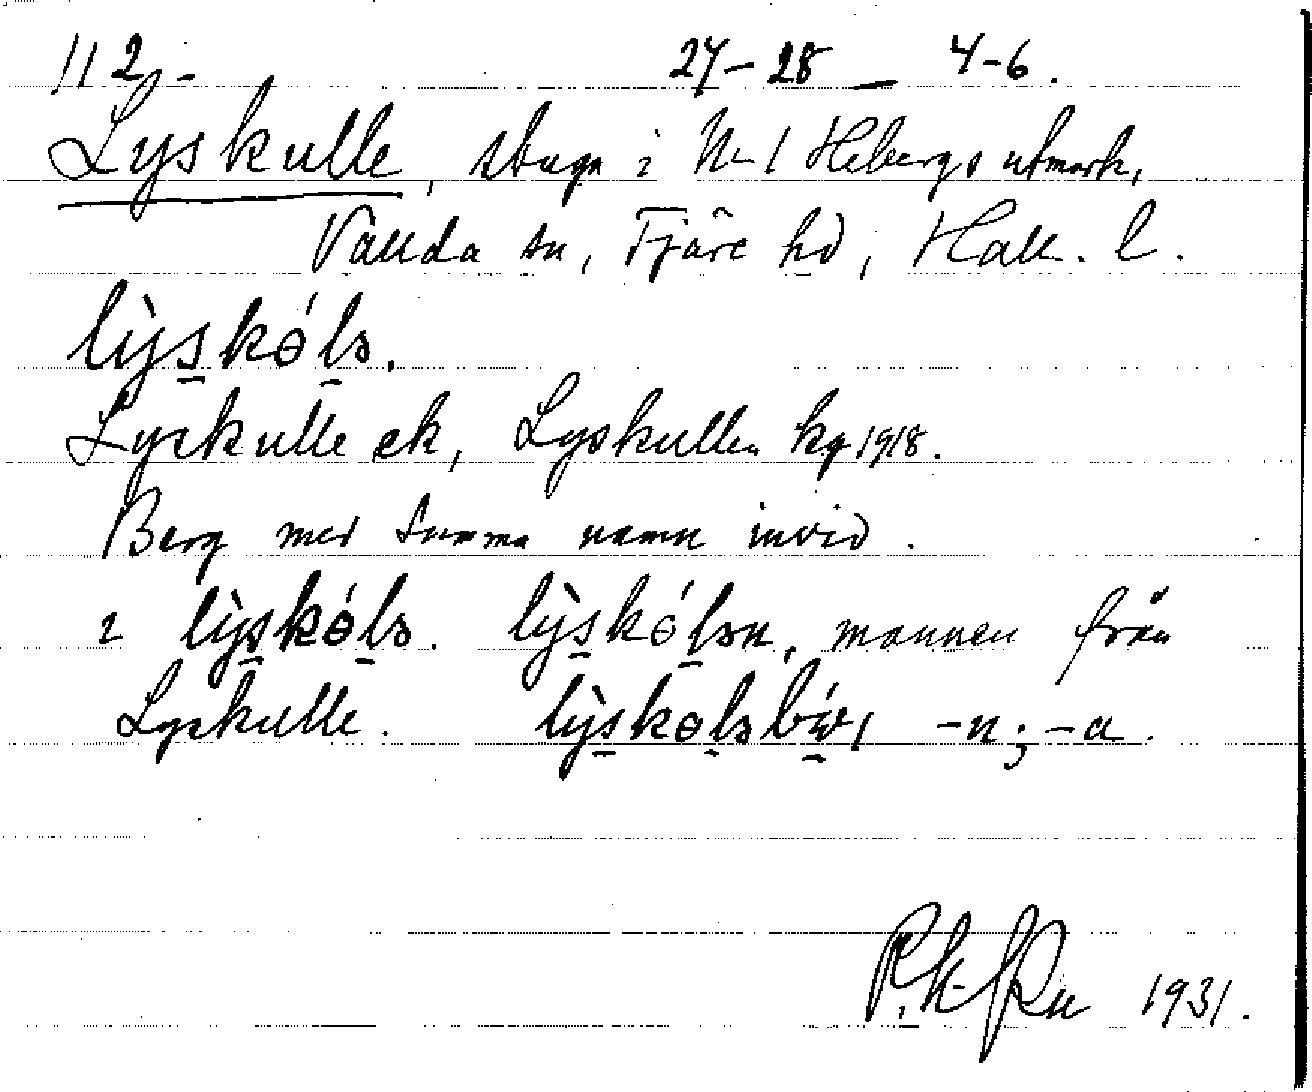 112.- 27-28 - 4-6.
Lyskulle, stuga i Nr 1 Hebergs utmark,
Vallda sn, Fjäre hd, Hall. l.
lỳskǿlə.
Lyskulle ek, Lyskullen kg 1918.
Berg med samma namn invid.
i lỳskǿlə. lỳskǿlən, mannen från
Lyskulle. lỳskølabiv, -n; -a.
1931.